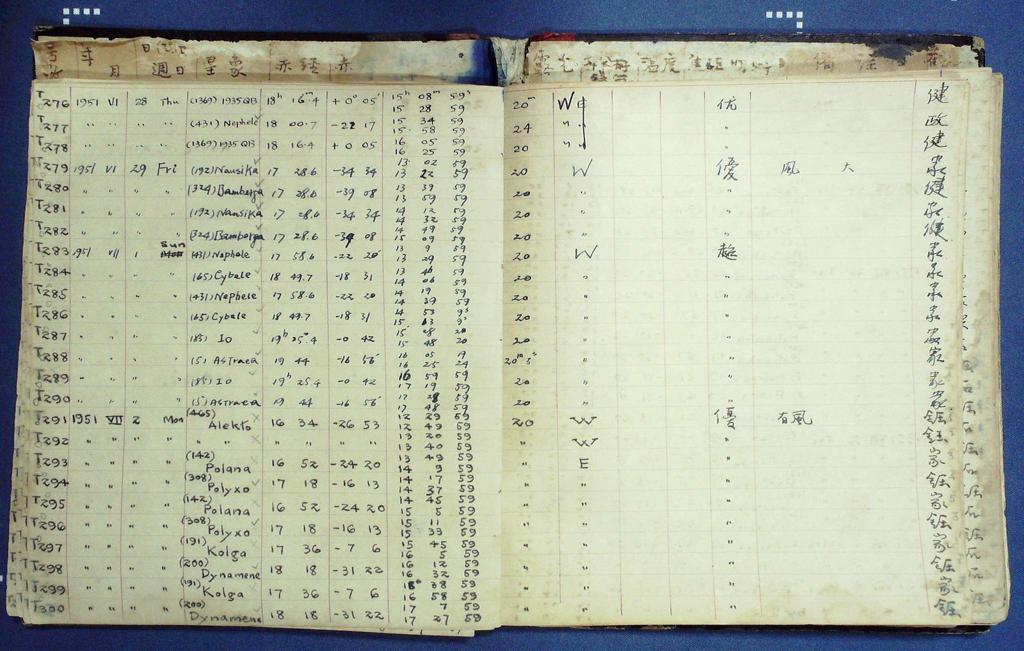 年 月 日 週日 星象 赤經 赤
溫度
T276 1951 VI 28 Thu (1369) 1935 QB 18h 16m.4 +0° 05' 15h 08m 59s 20m W 优 健
15 28 59
T277 " " " " (431) Nephele 18 00.7 -22 17 15 34 59 24 " 政
15 58 59
T278 " " " " (1369) 1935 QB 18 16.4 +0 05 16 05 59 20 " 健
16 25 59
T279 1951 VI 29 Fri (192) Nausika 17 28.6 -34 34 13 02 59 20 W 優 風 大 家
13 22 59
T280 " " " " (324) Bamberga 17 28.6 -39 08 13 39 59 20 " " 健
13 59 59
T281 " " " " (192) Nausika 17 28.6 -34 34 14 12 59 20 " " 家
14 32 59
T282 " " " " (324) Bamberga 17 28.6 -39 08 14 49 59 20 " " 健
15 09 59
T283 1951 VII 1 Sun (431) Nephele 17 58.6 -22 20 13 9 59 20 W 家
13 29 59
T284 " " " " (65) Cybele 18 49.7 -18 31 13 46 59 20 " " 家
14 06 59
T285 " " " " (431) Nephele 17 58.6 -22 20 14 19 59 20 " " 家
14 39 59
T286 " " " " (65) Cybele 18 49.7 -18 31 14 53 20 " " 家
15 13
T287 " " " " (85) Io 19h 25.4 -0 42 15 28 20 20 " " 家
15 48 20
T288 " " " " (5) Astraea 19 44 -16 56 16 05 20m 5s " " 家
16 25
T289 " " " " (85) Io 19h 25.4 -0 42 16 59 59 20 " " 家
17 19 59
T290 " " " " (5) Astraea 19 44 -16 56 17 28 59 20 " " 家
17 48 59
T291 1951 VII 2 Mon (465) Alekto 16 34 -26 53 12 29 59 20 W 優 有風 鈺
12 49 59
T292 " " " " " " " " " 13 20 59 " W " 鈺
13 40 59
T293 " " " " (142) Polana 16 52 -24 20 13 49 59 " E " 家
14 9 59
T294 " " " " (308) Polyxo 17 18 -16 13 14 17 59 " " " 鈺
14 37 59
T295 " " " " (142) Polana 16 52 -24 20 14 45 59 " " " 家
15 5 59
T296 " " " " (308) Polyxo 17 18 -16 13 15 11 59 " " " 鈺
15 33 59
T297 " " " " (191) Kolga 17 36 -7 6 15 45 59 " " " 家
16 5 59
T298 " " " " (200) Dynamene 18 18 -31 22 16 12 59 " " " 鈺
16 32 59
T299 " " " " (191) Kolga 17 36 -7 6 16 38 59 " " " 家
16 58 59
T300 " " " " (200) Dynamene 18 18 -31 22 17 7 59 " " " 鈺
17 27 59